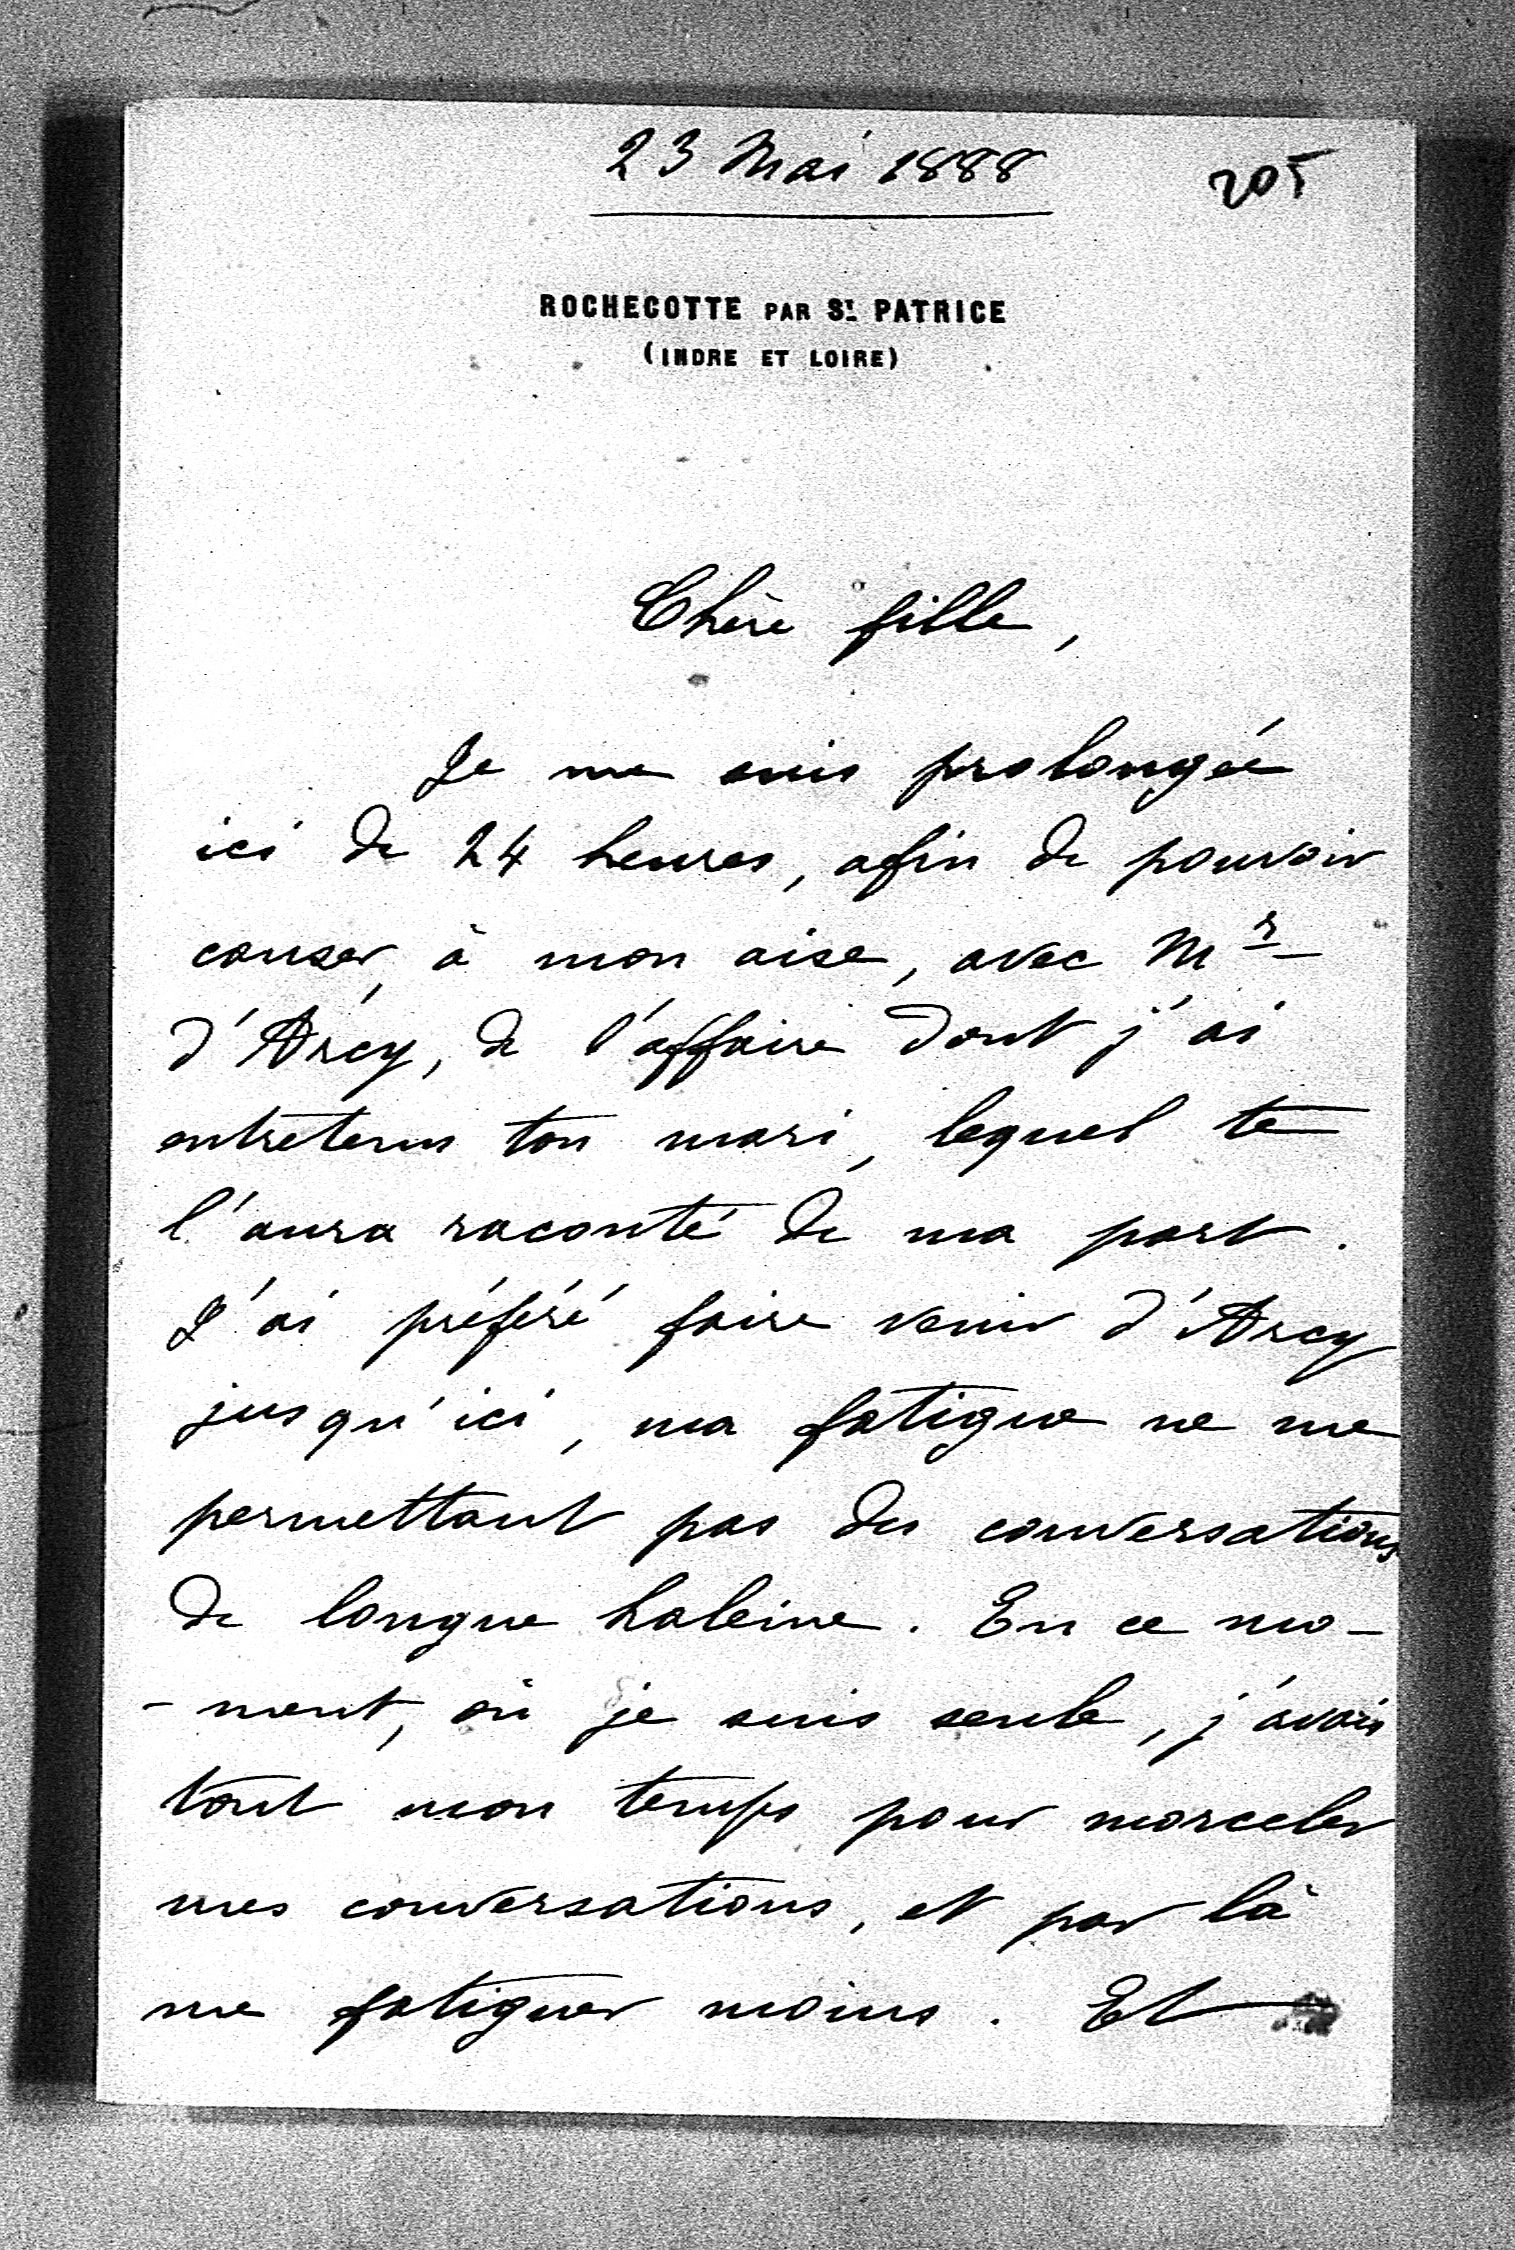 23 Mai 1888
205
ROCHECOTTE PAR ST. PATRICE
(INDRE ET LOIRE)
Chère fille,
Je me suis prolongée
ici de 24 heures, afin de pouvoir
causer, à mon aise, avec Mr
d'Arcy, de l'affaire dont j'ai
entretenu ton mari, lequel te
l'aura raconté de ma part.
J'ai préféré faire venir d'Arcy
jusqu'ici, ma fatigue ne me
permettant pas des conversations
de longue haleine. En ce mo-
-ment, où je suis seule, j'avais
tout mon temps pour morceler
mes conversations, et par là
me fatiguer moins. Et